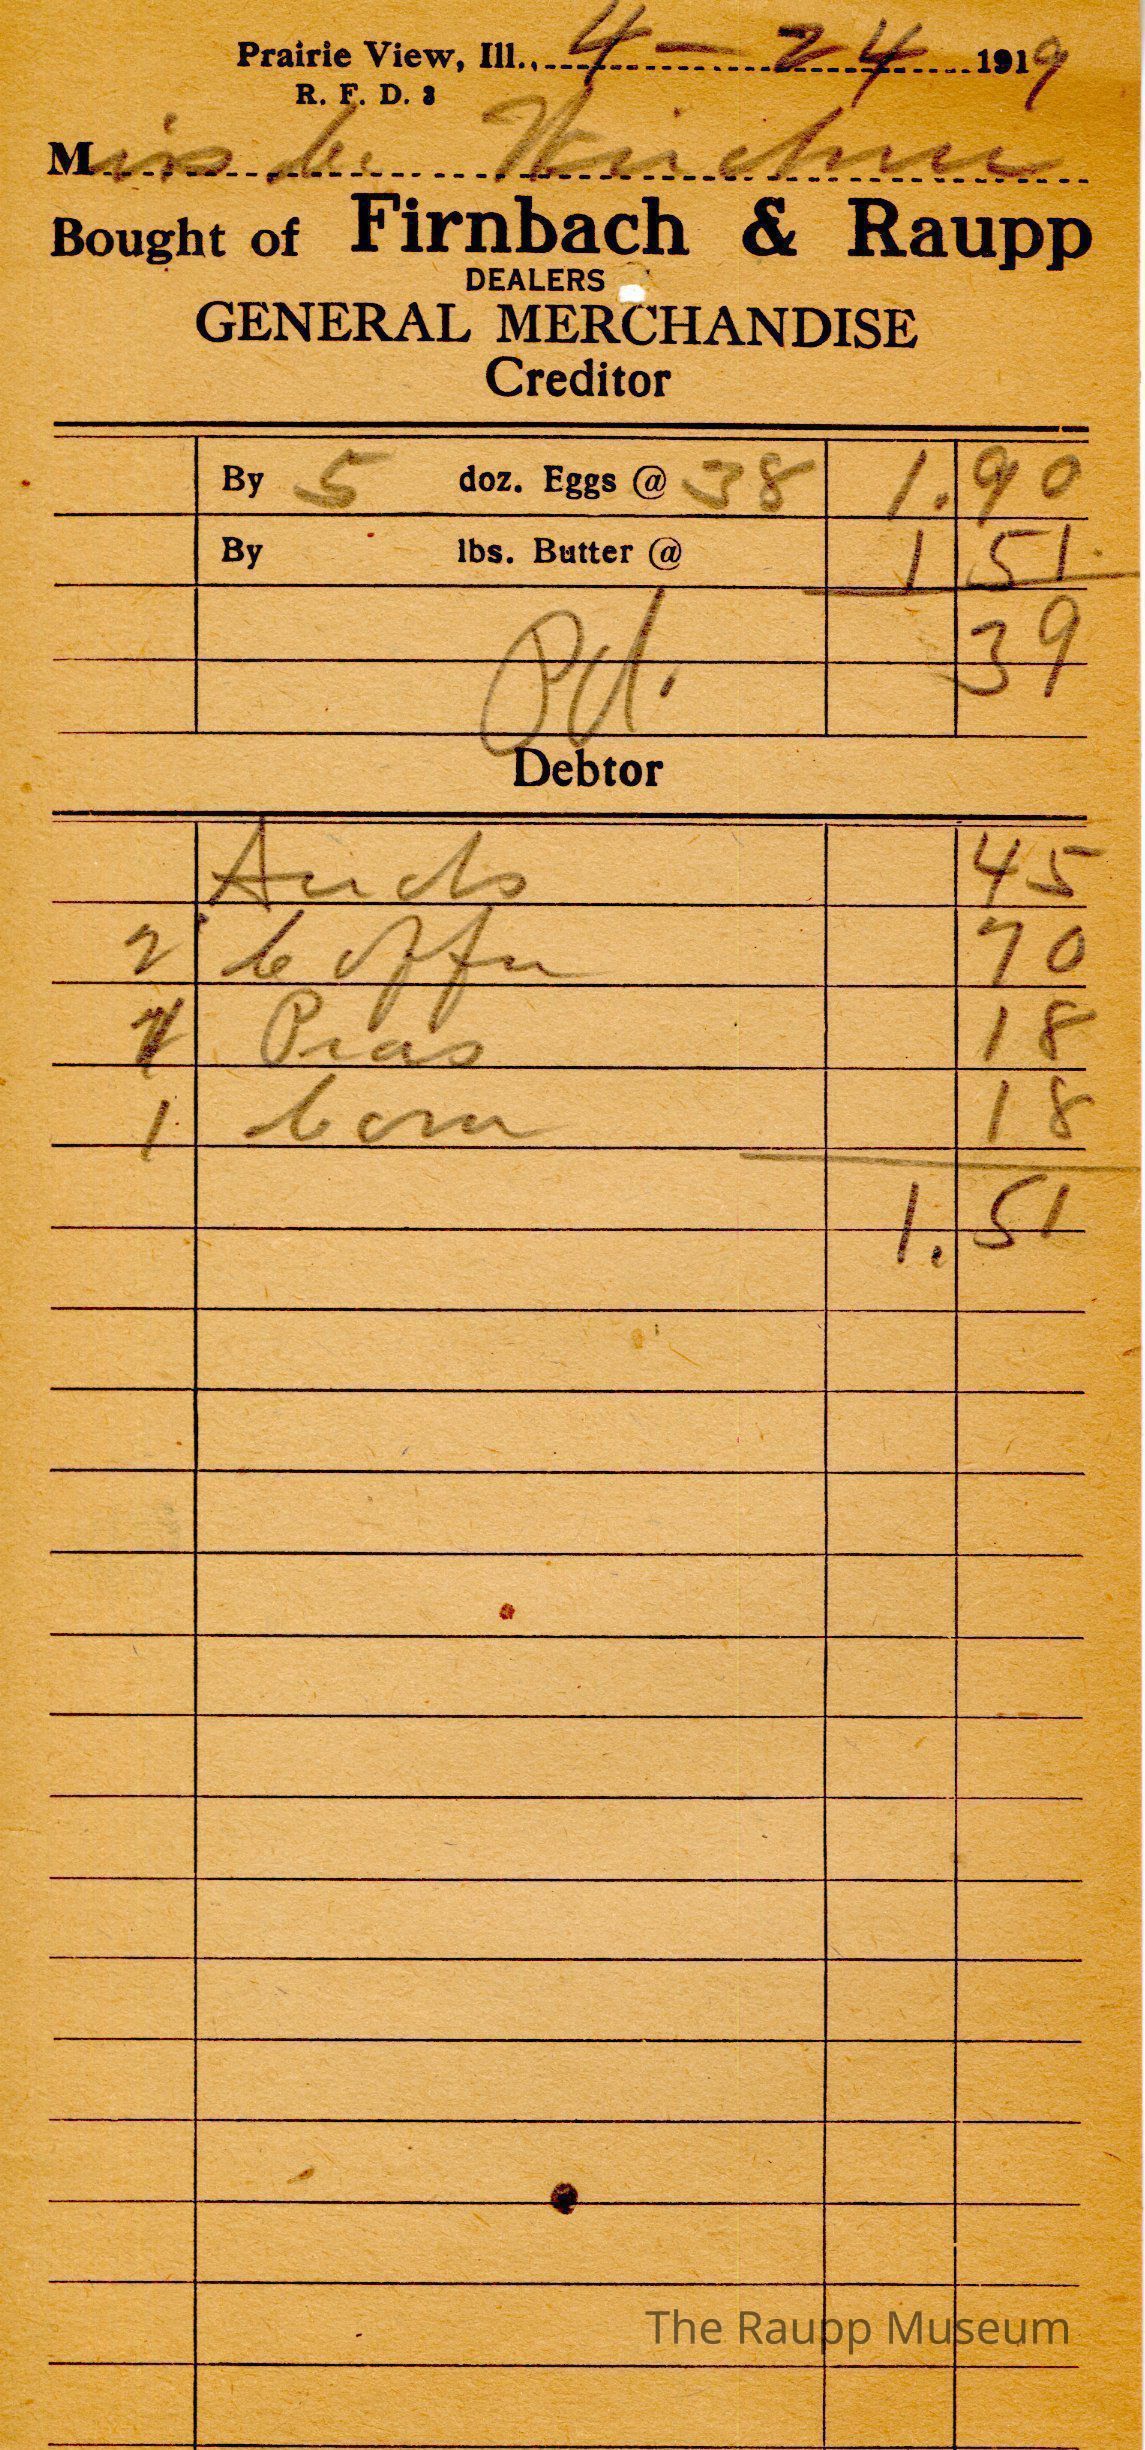 Prairie View, Ill., 4-24 1919
R. F. D. 3
Miss C.
Bought of Firnbach & Raupp
DEALERS
GENERAL MERCHANDISE
Creditor
By 5 doz. Eggs @ 38 1.90
By lbs. Butter @ 1 51
39
Pd.
Debtor
45
2 Coffee 70
1 Peas 18
1 Corn 18
1.51
The Raupp Museum